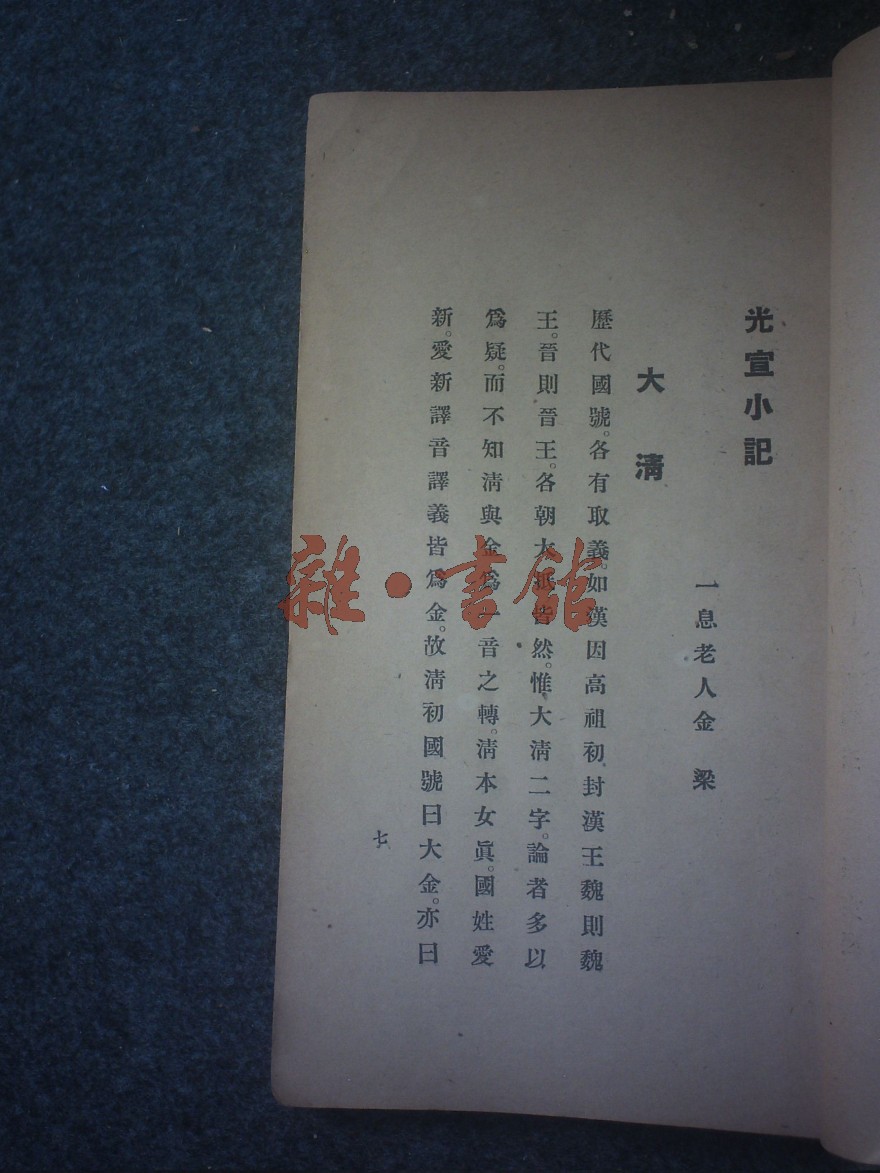 光宣小記
一息老人金梁
大清
歷代國號。各有取義。如漢因高祖初封漢王魏則魏
王。晉則晉王。各朝大抵皆然。惟大清二字。論者多以
爲疑。而不知清與金爲一音之轉。清本女眞。國姓愛
新。愛新譯音譯義皆爲金。故清初國號曰大金。亦曰
七
雜·書館